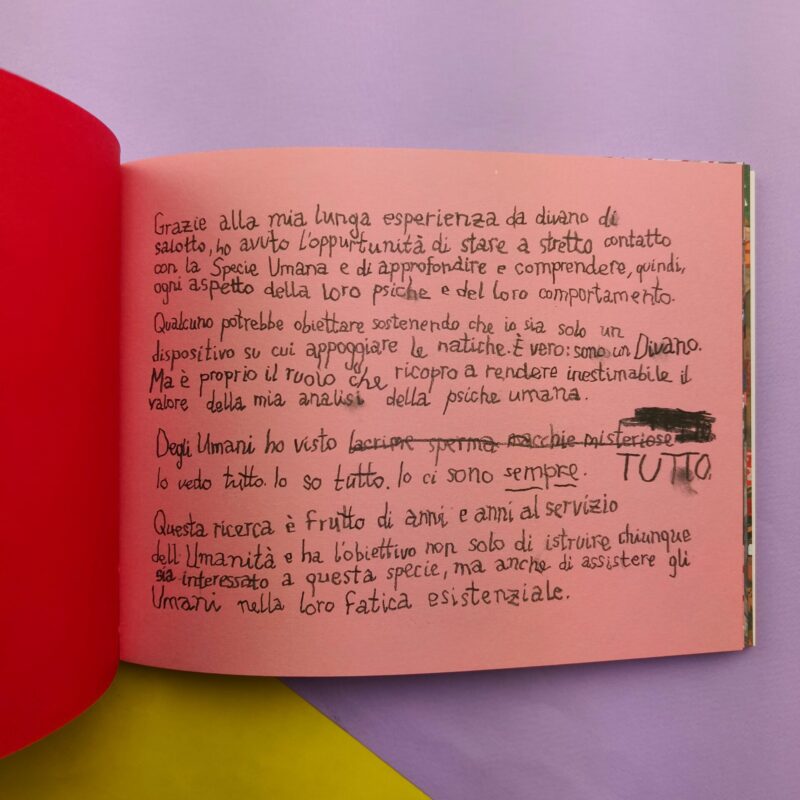 Grazie alla mia lunga esperienza da divano di
salotto, ho avuto l'oppurtunità di stare a stretto contatto
con la Specie Umana e di approfondire e comprendere, quindi,
ogni aspetto della loro psiche e del loro comportamento.
Qualcuno potrebbe obiettare sostenendo che io sia solo un
dispositivo su cui appoggiare le natiche. È vero: sono un Divano.
Ma è proprio il ruolo che ricopro a rendere inestimabile il
valore della mia analisi della psiche umana.
Degli Umani ho visto lacrime sperma macchie misteriose
Io vedo tutto. Io so tutto. Io ci sono sempre. TUTTO.
Questa ricerca è frutto di anni e anni al servizio
dell'Umanità e ha l'obiettivo non solo di istruire chiunque
sia interessato a questa specie, ma anche di assistere gli
Umani nella loro fatica esistenziale.